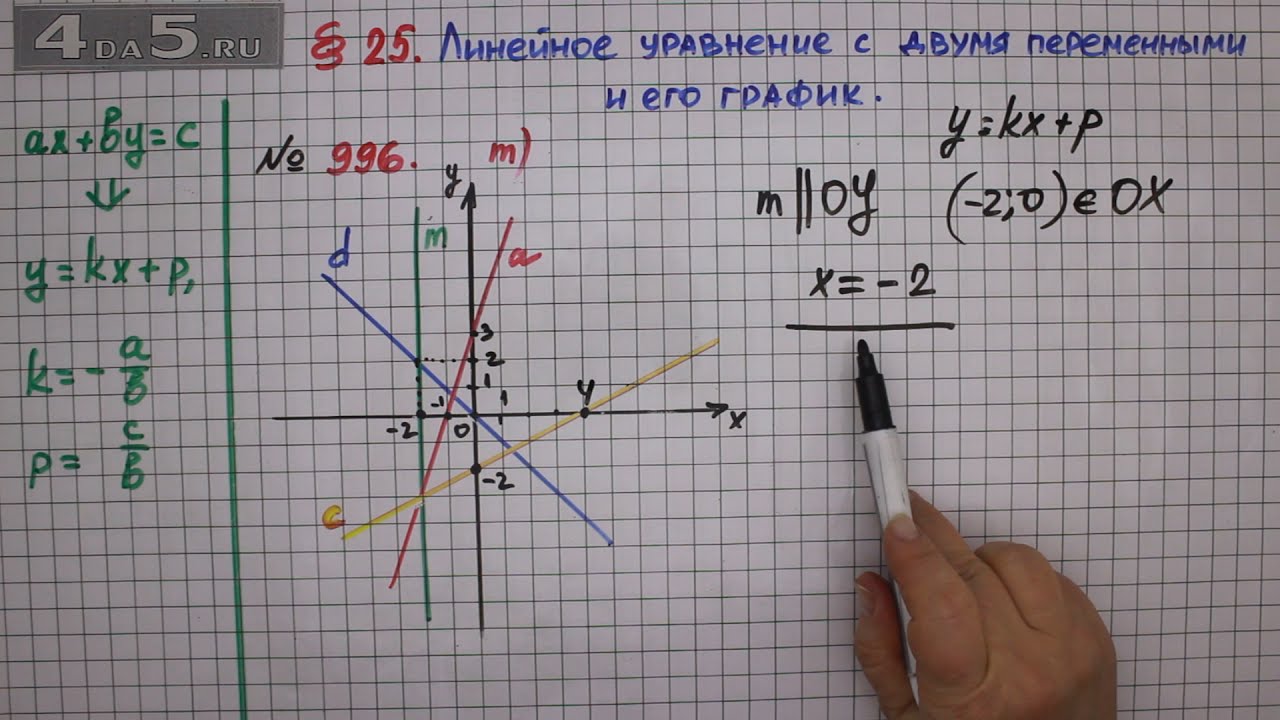 4DA5.RU
§ 25. Линейное уравнение с двумя переменными
и его график.
ax+by=c
⇓
y=kx+p,
k=-a/b
p=c/b
№ 996. m)
y
d
m
a
3
2
1
-1
1
4
-2
0
x
-2
c
y=kx+p
m||OY (-2;0)∈OX
x=-2